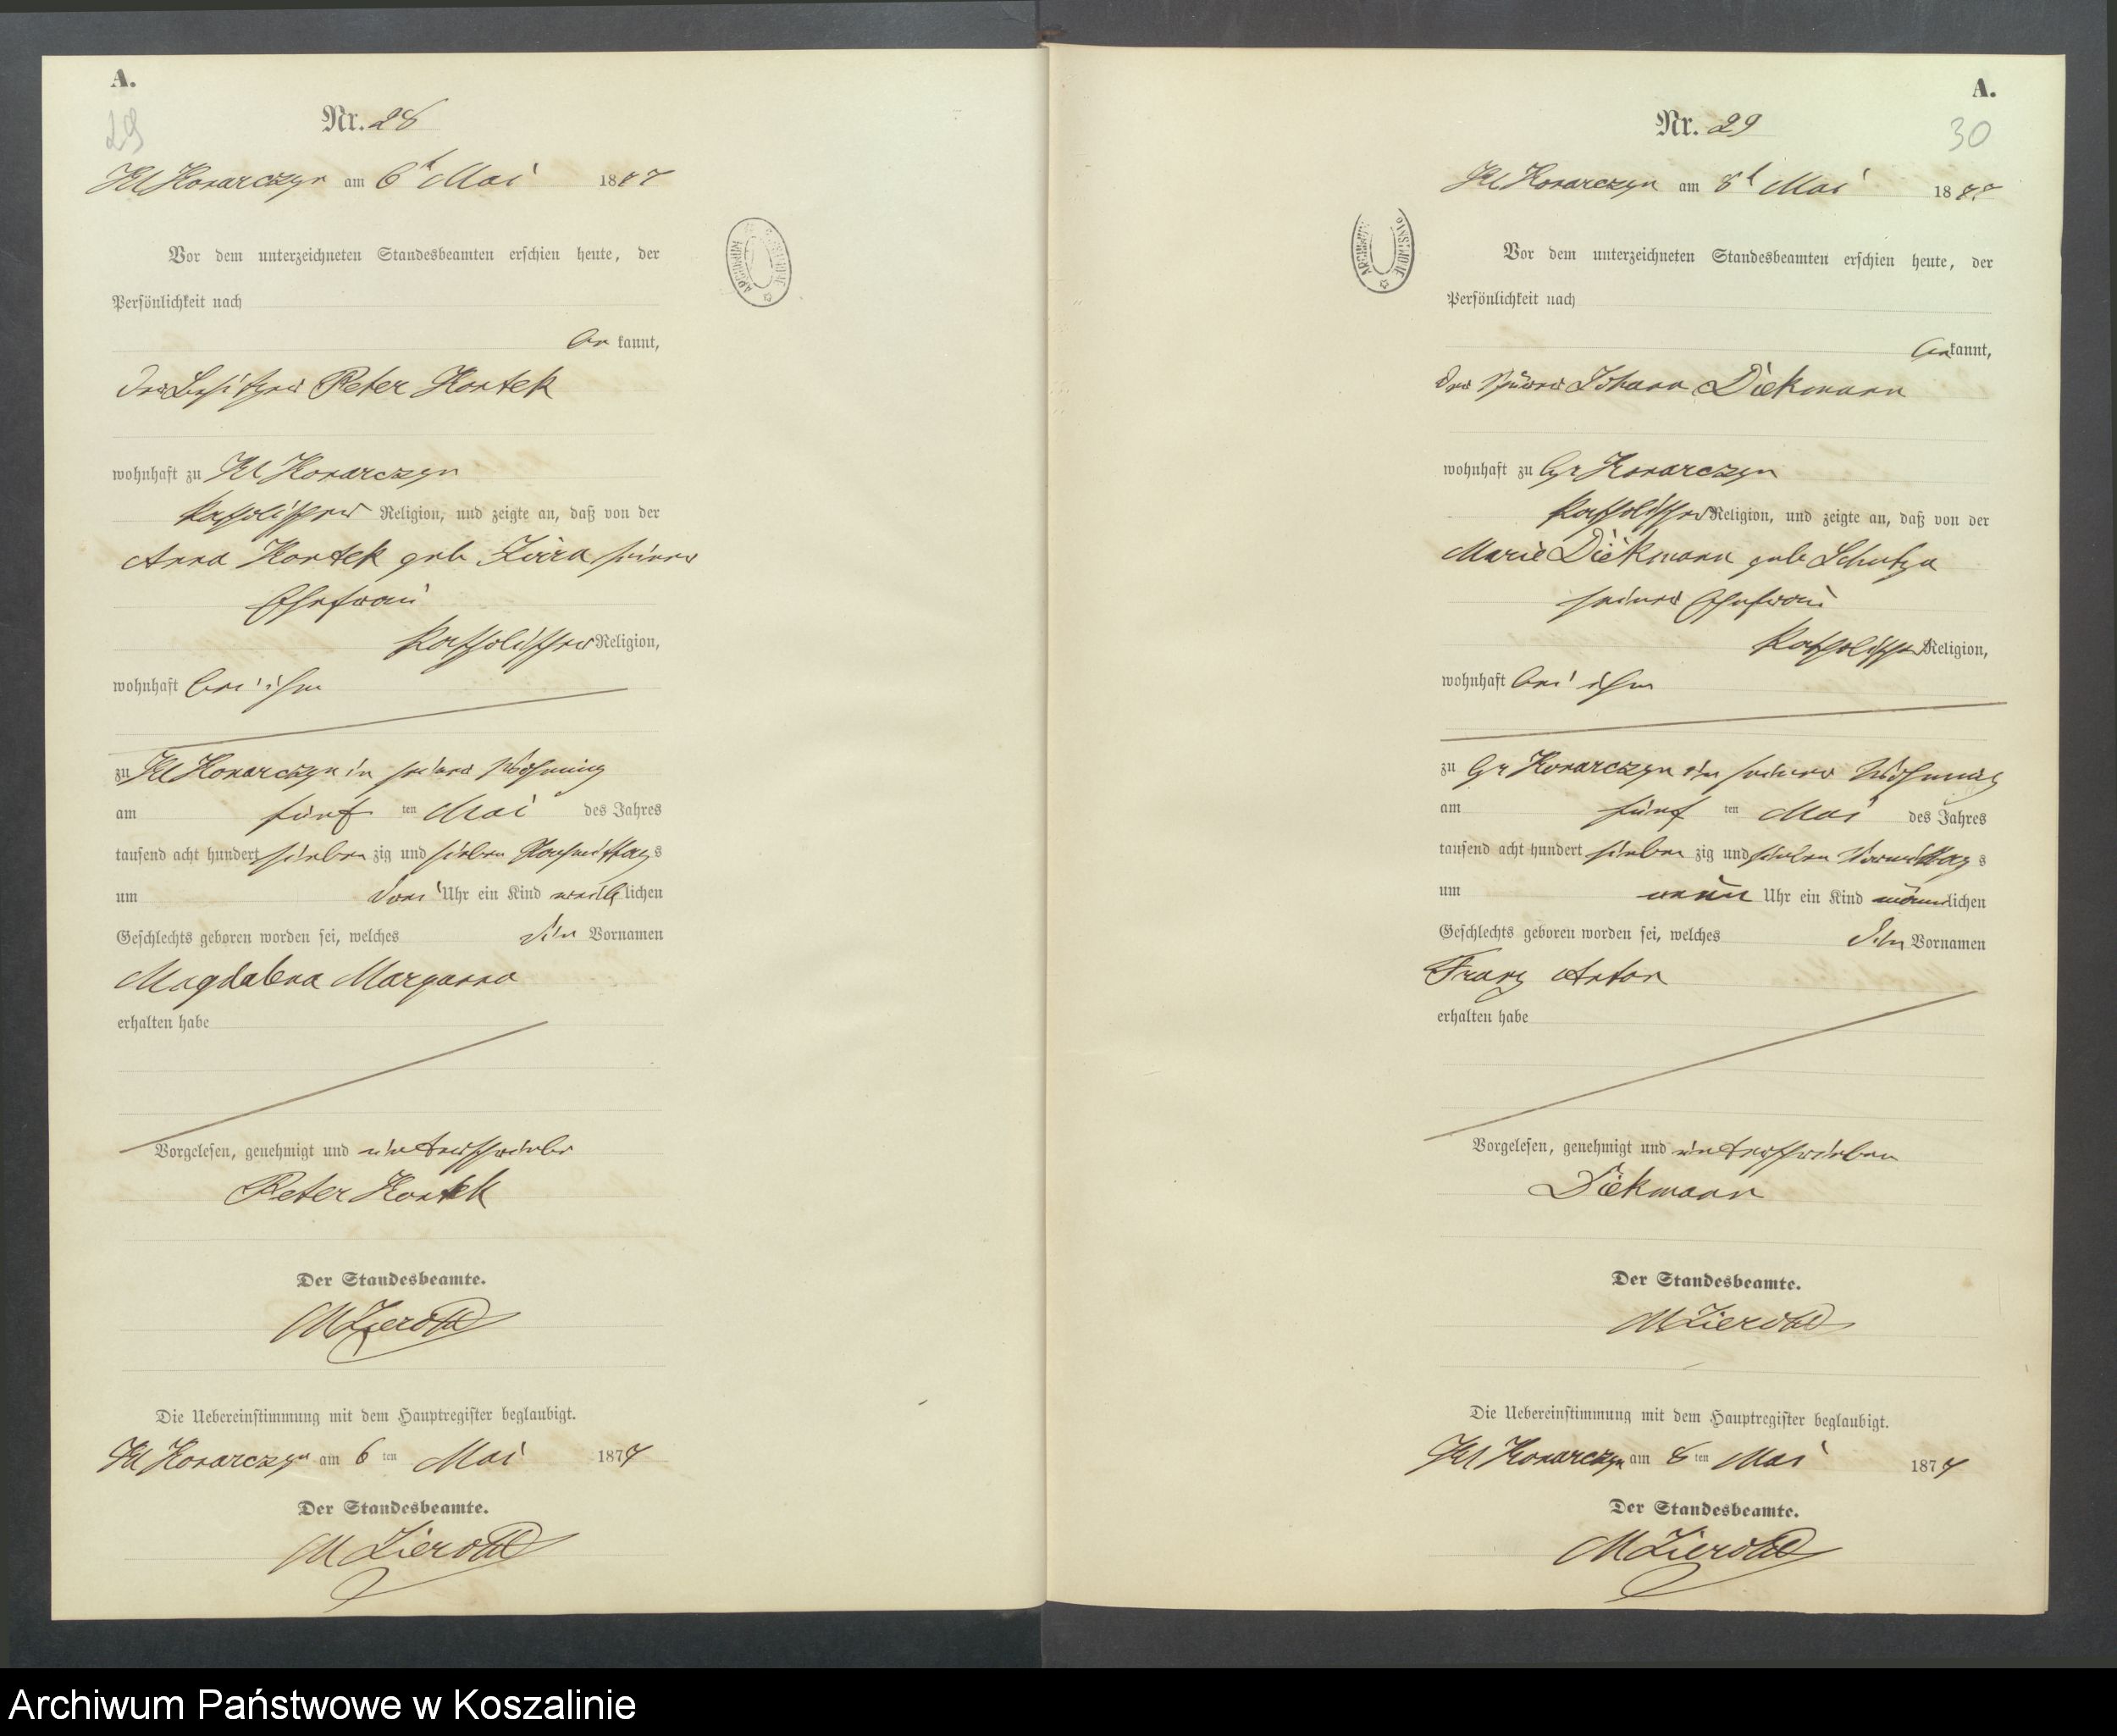 A.
29
Nr. 28
Kl Konarczyn am 6t Mai 1877
Vor dem unterzeichneten Standesbeamten erschien heute, der
Persönlichkeit nach
be kannt,
der Besitzer Peter Kontek
wohnhaft zu Kl Konarczyn
katholischer Religion, und zeigte an, daß von der
Anna Kontek geb seiner
Ehefrau
katholischer Religion,
wohnhaft bei ihm
zu Kl Konarczyn in seiner Wohnung
am fünf ten Mai des Jahres
tausend acht hundert sieben zig und sieben Nachmittag s
um drei Uhr ein Kind weib lichen
Geschlechts geboren worden sei, welches den Vornamen
Magdalena
erhalten habe
Vorgelesen, genehmigt und unterschrieben
Peter Kontek
Der Standesbeamte.
M Zierold
Die Uebereinstimmung mit dem Hauptregister beglaubigt.
Kl Konarczyn am 6 ten Mai 1877
Der Standesbeamte.
M Zierold
A.
30
Nr. 29
Kl Konarczyn am 8t Mai 1877
Vor dem unterzeichneten Standesbeamten erschien heute, der
Persönlichkeit nach
be kannt,
der Johann Diekmann
wohnhaft zu Gr Konarczyn
katholischer Religion, und zeigte an, daß von der
Marie Diekmann geb
seiner Ehefrau
katholischer Religion,
wohnhaft bei ihm
zu Gr Konarczyn in seiner Wohnung
am fünf ten Mai des Jahres
tausend acht hundert sieben zig und sieben Vormittag s
um neun Uhr ein Kind männ lichen
Geschlechts geboren worden sei, welches den Vornamen
Franz Anton
erhalten habe
Vorgelesen, genehmigt und unterschrieben
Diekmann
Der Standesbeamte.
M Zierold
Die Uebereinstimmung mit dem Hauptregister beglaubigt.
Kl Konarczyn am 8 ten Mai 1877
Der Standesbeamte.
M Zierold
Archiwum Państwowe w Koszalinie